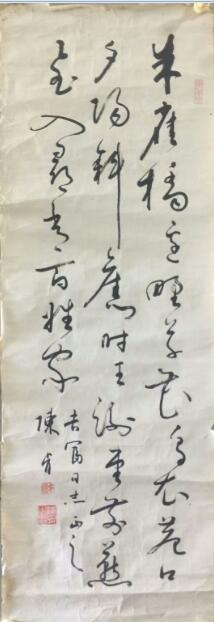 朱雀橋邊野草花烏衣巷口
夕陽斜舊時王謝堂前燕
飛入尋常百姓家
吉富同志正之
陳